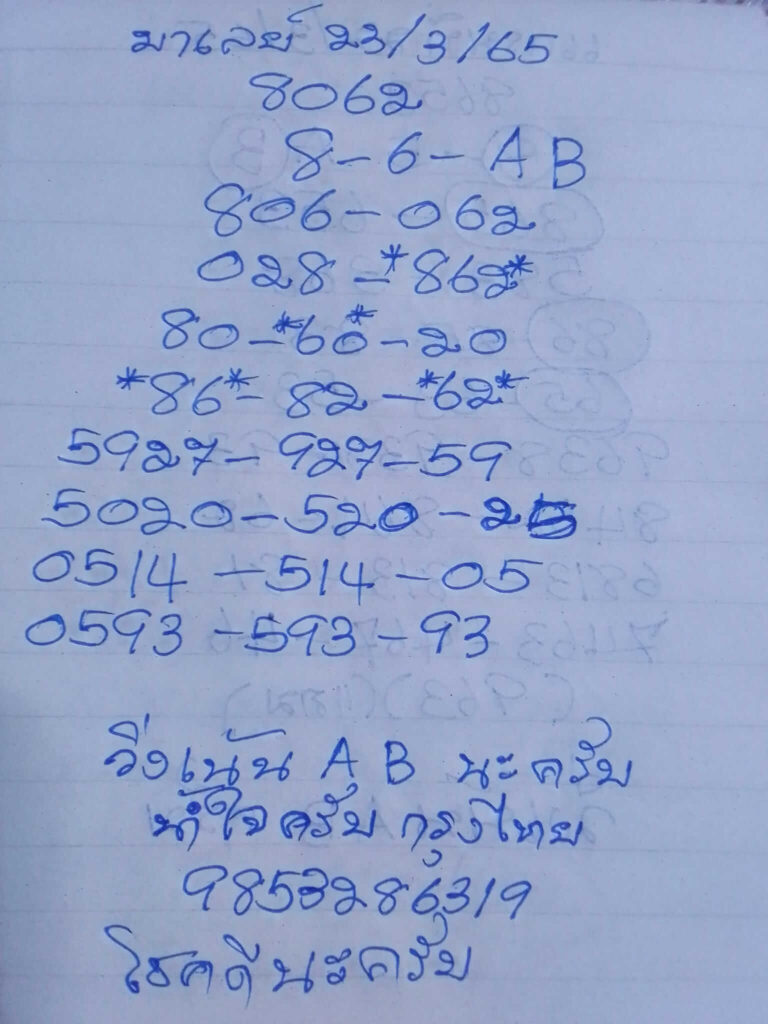 มาเลย์ 23/3/65
8062
8-6-A B
806-062
028-*862*
80-*60*-20
*86*-82-*62*
5927-927-59
5020-520-25
0514-514-05
0593-593-93
วิ่งเน้น A B นะครับ
น้ำใจครับ กรุงไทย
9853286319
โชคดีนะครับ